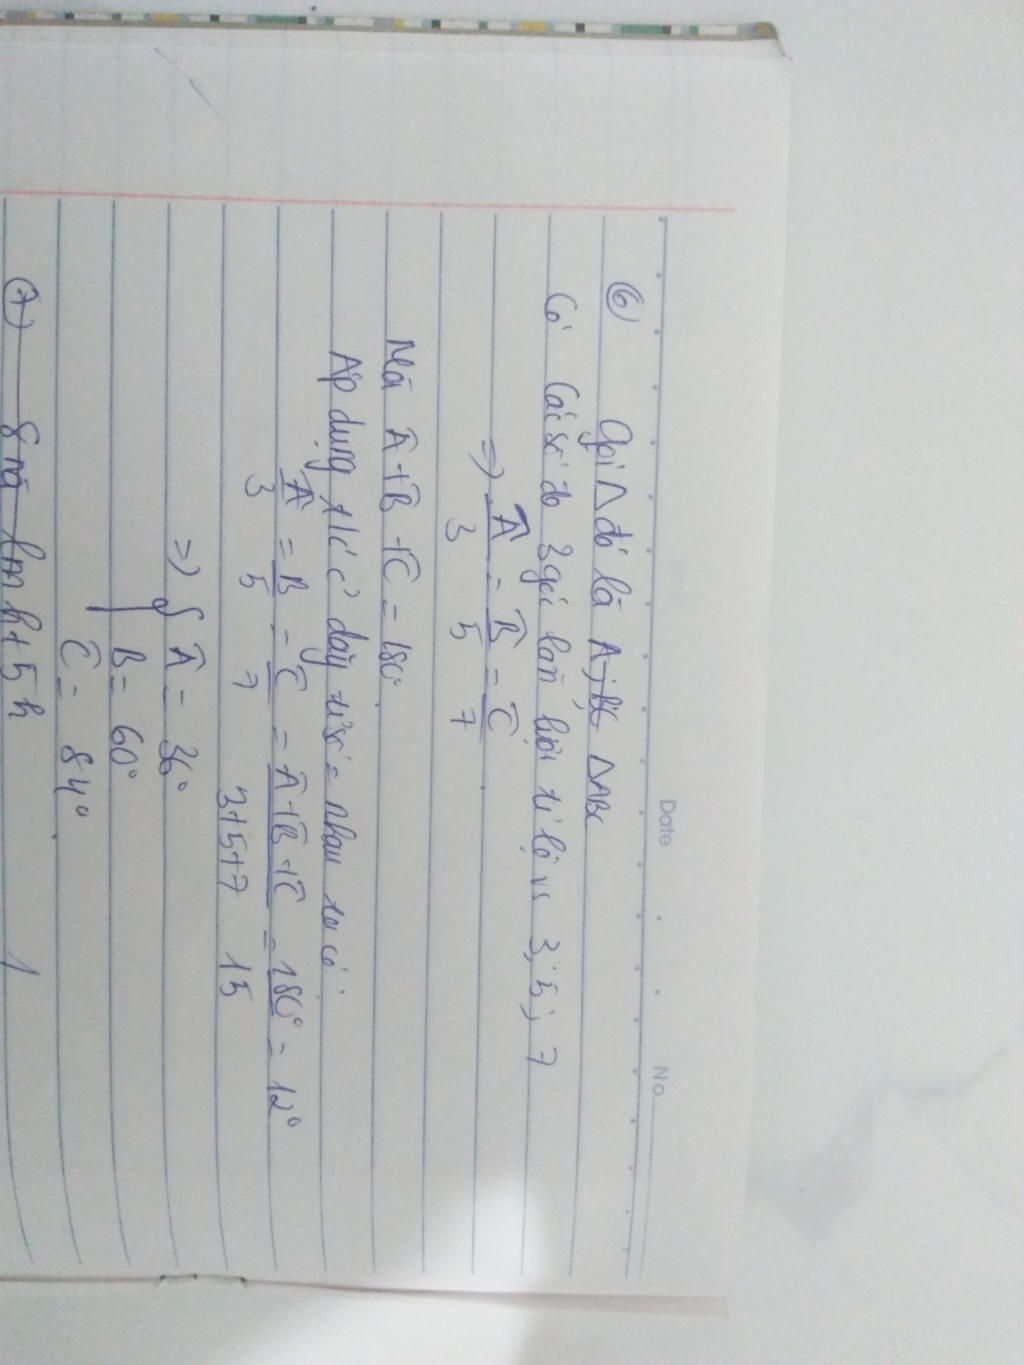 Date No.
⑥ Gọi Δ đó là A; BC ΔABC
Có các số đo 3 góc lần lượt tỉ lệ vs 3; 5; 7
=> Â/3 = B̂/5 = Ĉ/7
Mà Â + B̂ + Ĉ = 180°
Áp dụng t/c' dãy tỉ số = nhau ta có
Â/3 = B̂/5 = Ĉ/7 = Â+B̂+Ĉ/3+5+7 = 180°/15 = 12°
=> { Â = 36°
B̂ = 60°
Ĉ = 84°
⑦ 8 5 h